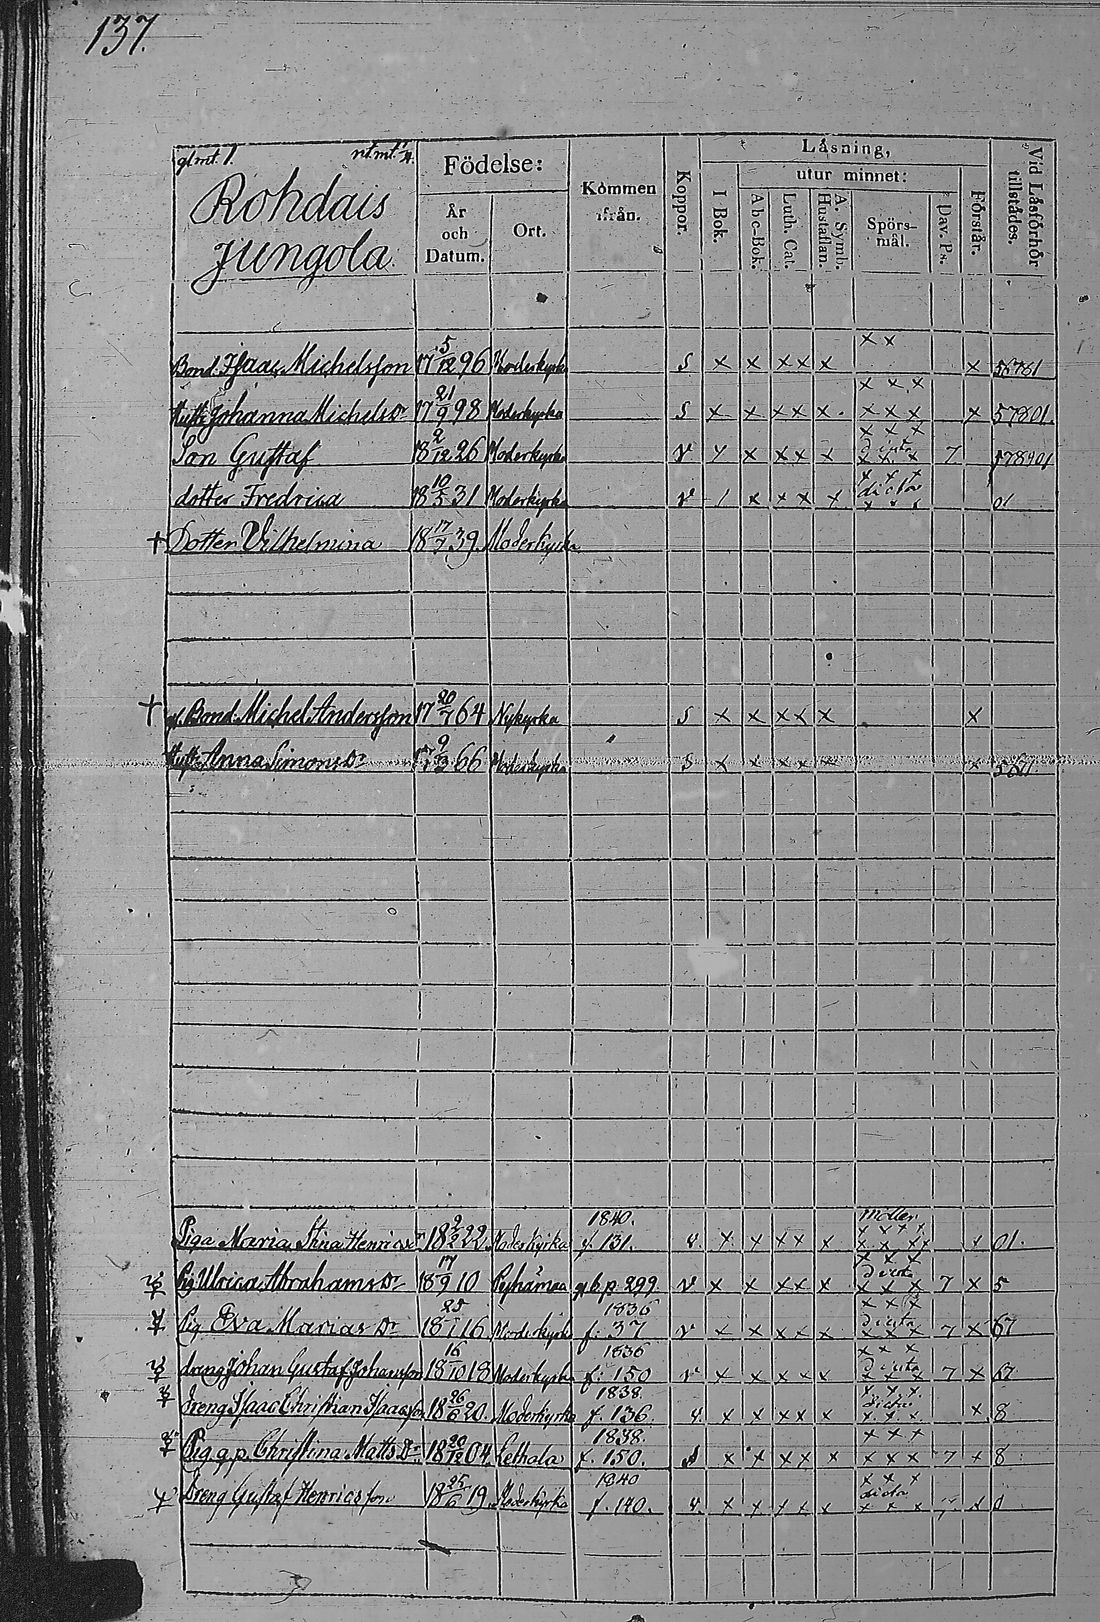 137.
glmt. 1. nt.mt. 4.
Rohdais
Jungola
Födelse:
År och Datum.
Ort.
Kommen ifrån.
Koppor.
Läsning,
I Bok.
utur minnet:
Abc-Bok.
Luth. Cat.
A. Symb. Hustaflan.
Spörs-mål.
Dav. Ps.
Förstår.
Vid Läsförhör tillstådes.
x x
Bond. Isaac Michelsson 17 5/12 96 Moderkyrka S x x x x x x 56781
x x x
Hust. Johanna Michels Dr 17 21/9 98 Moderkyrka S x x x x x. x x x x 57801.
x x x
Son Gustaf 18 2/12 26 Moderkyrka v x x x x x dicta x x x 7 578901
dotter Fredrica 18 10/5 31 Moderkyrka v / x x x x dicta 01
† Dotter Vilhelmina 18 17/7 39. Moderkyrka
† gl. Bond. Michel Andersson 17 20/7 64 Nykyrka S x x x x x x
Hust. Anna Simons Dr 17 9/3 66 Moderkyrka S x x x x x x
Piga Maria Stina Henrics Dr 18 2/3 22 Moderkyrka 1840. f. 131. v. x x x x x Möller x x x x 01.
Pig Ulrica Abrahams Dr 18 17/9 10 Pyhämaa gl. b. p. 299. v x x x x x dicta x x x 7 x 5
Pig Eva Marias Dr 18 25/1 16 Moderkyrk 1836 f. 37 v x x x x x dicta x x x 7 x 67
dräng Johan Gustaf Johansson 18 16/10 18 Moderkyrka 1836 f. 150 v x x x x x dicta x x x 7 x 67
Dreng Isaac Christian Isaacsson 18 26/6 20. Moderkyrka 1838. f. 136. v. x x x x x dicta x x x x 8
Pig. g. p. Christina Matts Dr 18 20/12 04. Lethala 1838. f. 150. S x x x x x x x x 7 x 8
Dreng Gustaf Henricsson 18 25/6 19. Moderkyrka 1840 f. 140. v. x x x x x dicta x x x 7 x 0